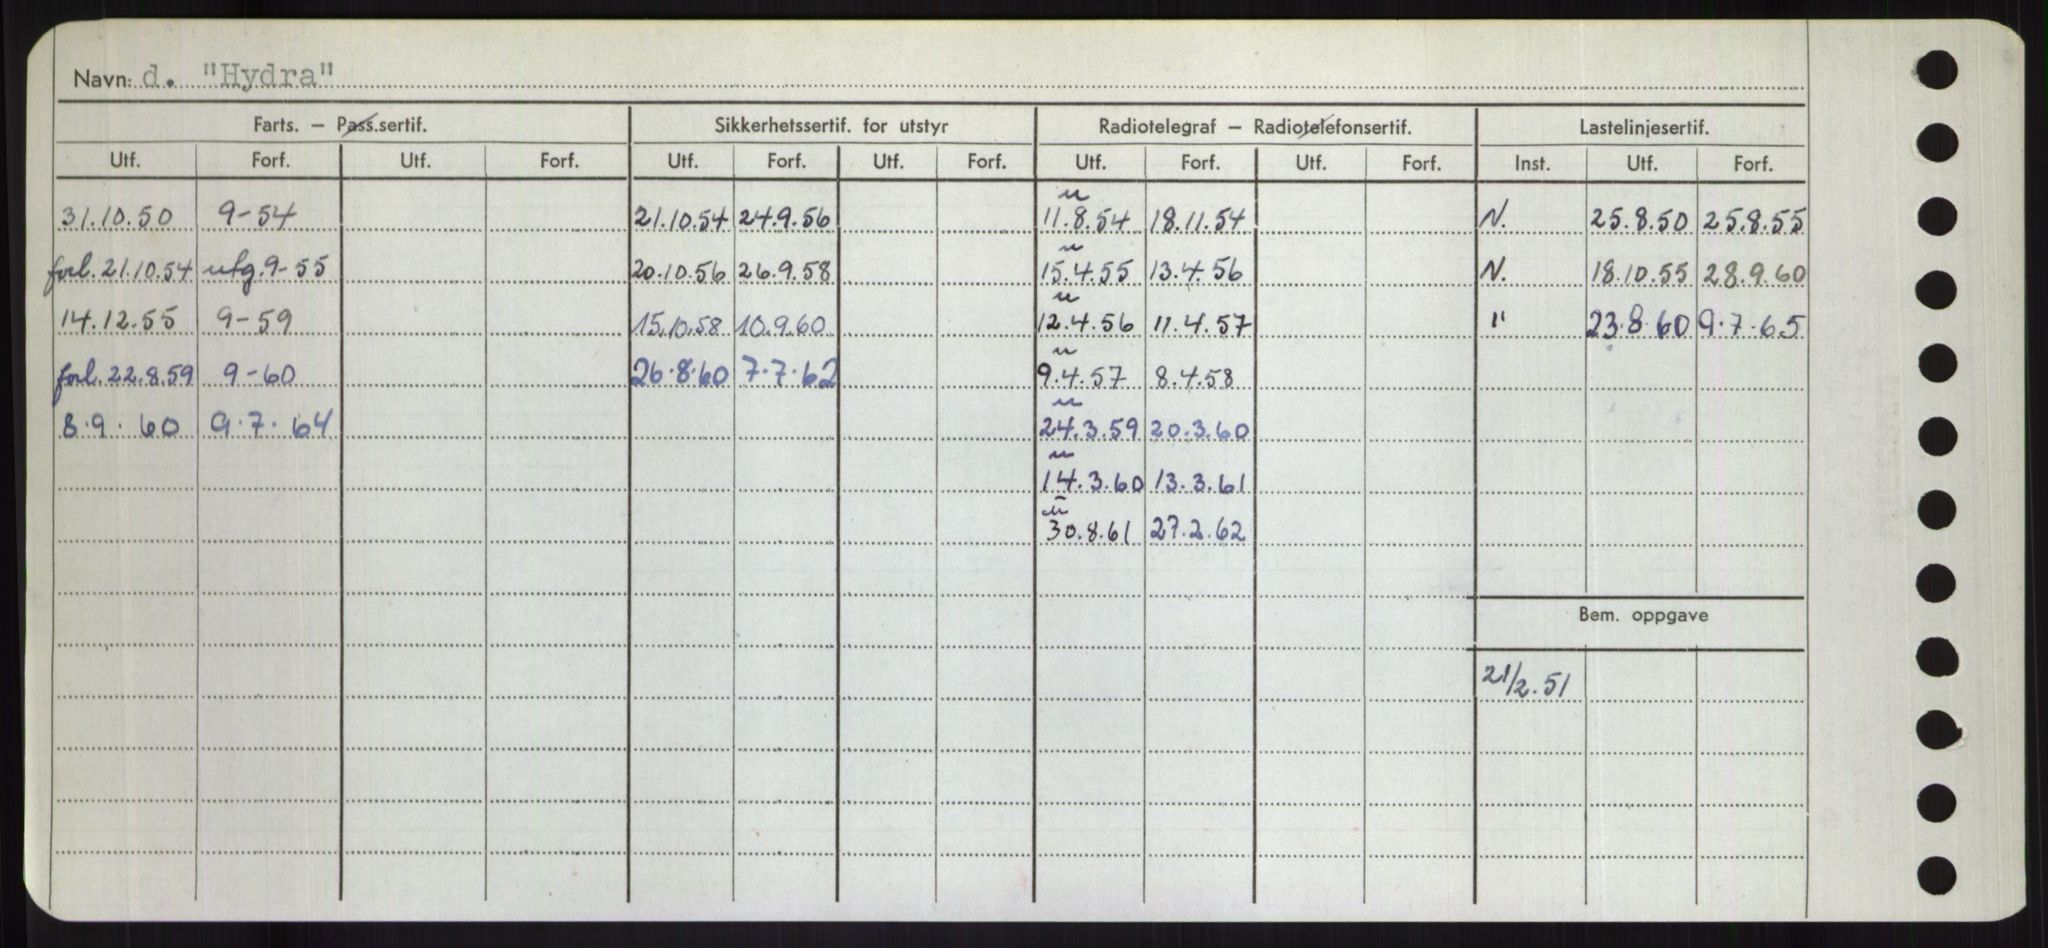 Navn: d. "Hydra"
Farts. — Pass.sertif. Sikkerhetssertif. for utstyr Radiotelegraf — Radiotelefonsertif. Lastelinjesertif.
Utf. Forf. Utf. Forf. Utf. Forf. Utf. Forf. Utf. Forf. Utf. Forf. Inst. Utf. Forf.
31.10.50 9-54 21.10.54 24.9.56 11.8.54 18.11.54 N. 25.8.50 25.8.55
forl. 21.10.54 utg. 9-55 20.10.56 26.9.58 15.4.55 13.4.56 N. 18.10.55 28.9.60
14.12.55 9-59 15.10.58 10.9.60 12.4.56 11.4.57 " 23.8.60 9.7.65
forl. 22.8.59 9-60 26.8.60 7.7.62 9.4.57 8.4.58
8.9.60 9.7.64 24.3.59 20.3.60
14.3.60 13.3.61
30.8.61 27.2.62
Bem. oppgave
21/2.51